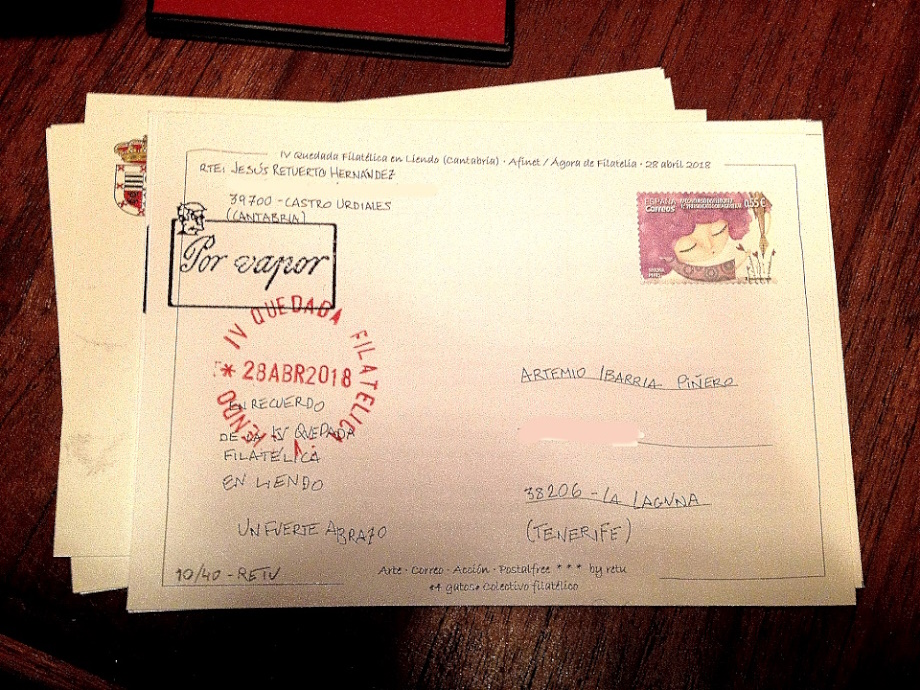 IV Quedada Filatélica en Liendo (Cantabria) · Afinet / Ágora de Filatelia · 28 abril 2018
RTE: JESÚS RETUERTO HERNÁNDEZ
39700 - CASTRO URDIALES
(CANTABRIA)
ESPAÑA
Correos
0,55 €
Por vapor
IV QUEDADA FILATELICA
LIENDO
* 28ABR2018
EN RECUERDO
DE LA IV QUEDADA
FILATÉLICA
EN LIENDO
UN FUERTE ABRAZO
ARTEMIO IBARRIA PIÑERO
38206 - LA LAGUNA
(TENERIFE)
10/40 - RETU
Arte · Correo · Acción · Postalfree * * * by retu
«4 gatos» Colectivo filatélico